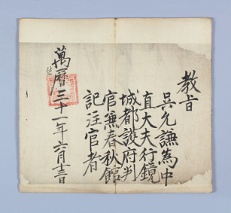 教旨
吳允謙爲中
直大夫行鏡
城都護府判
官兼春秋館
記注官者
萬曆三十一年六月十三日